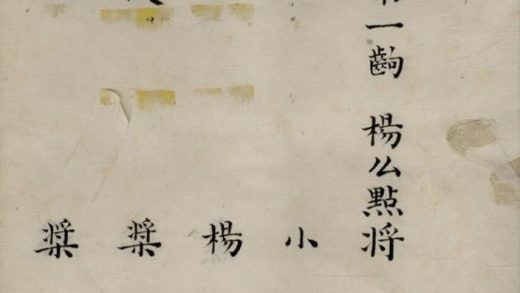 一齣 楊么點將
小
楊
槳
槳